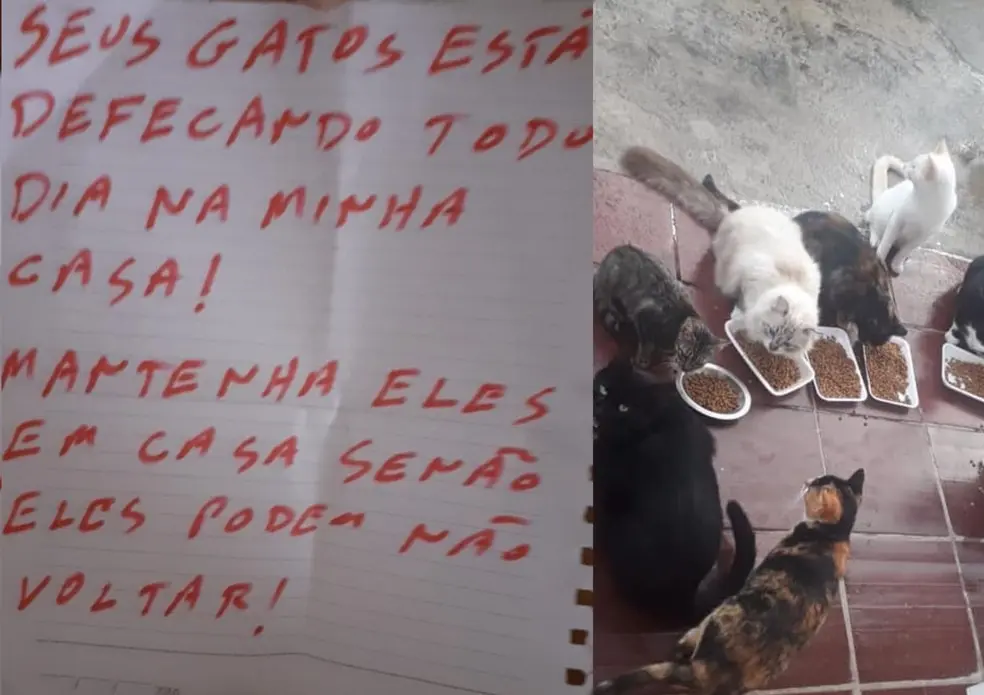 SEUS GATOS ESTÃ
DEFECANDO TODO
DIA NA MINHA
CASA!
MANTENHA ELES
EM CASA SENÃO
ELES PODEM NÃO
VOLTAR!